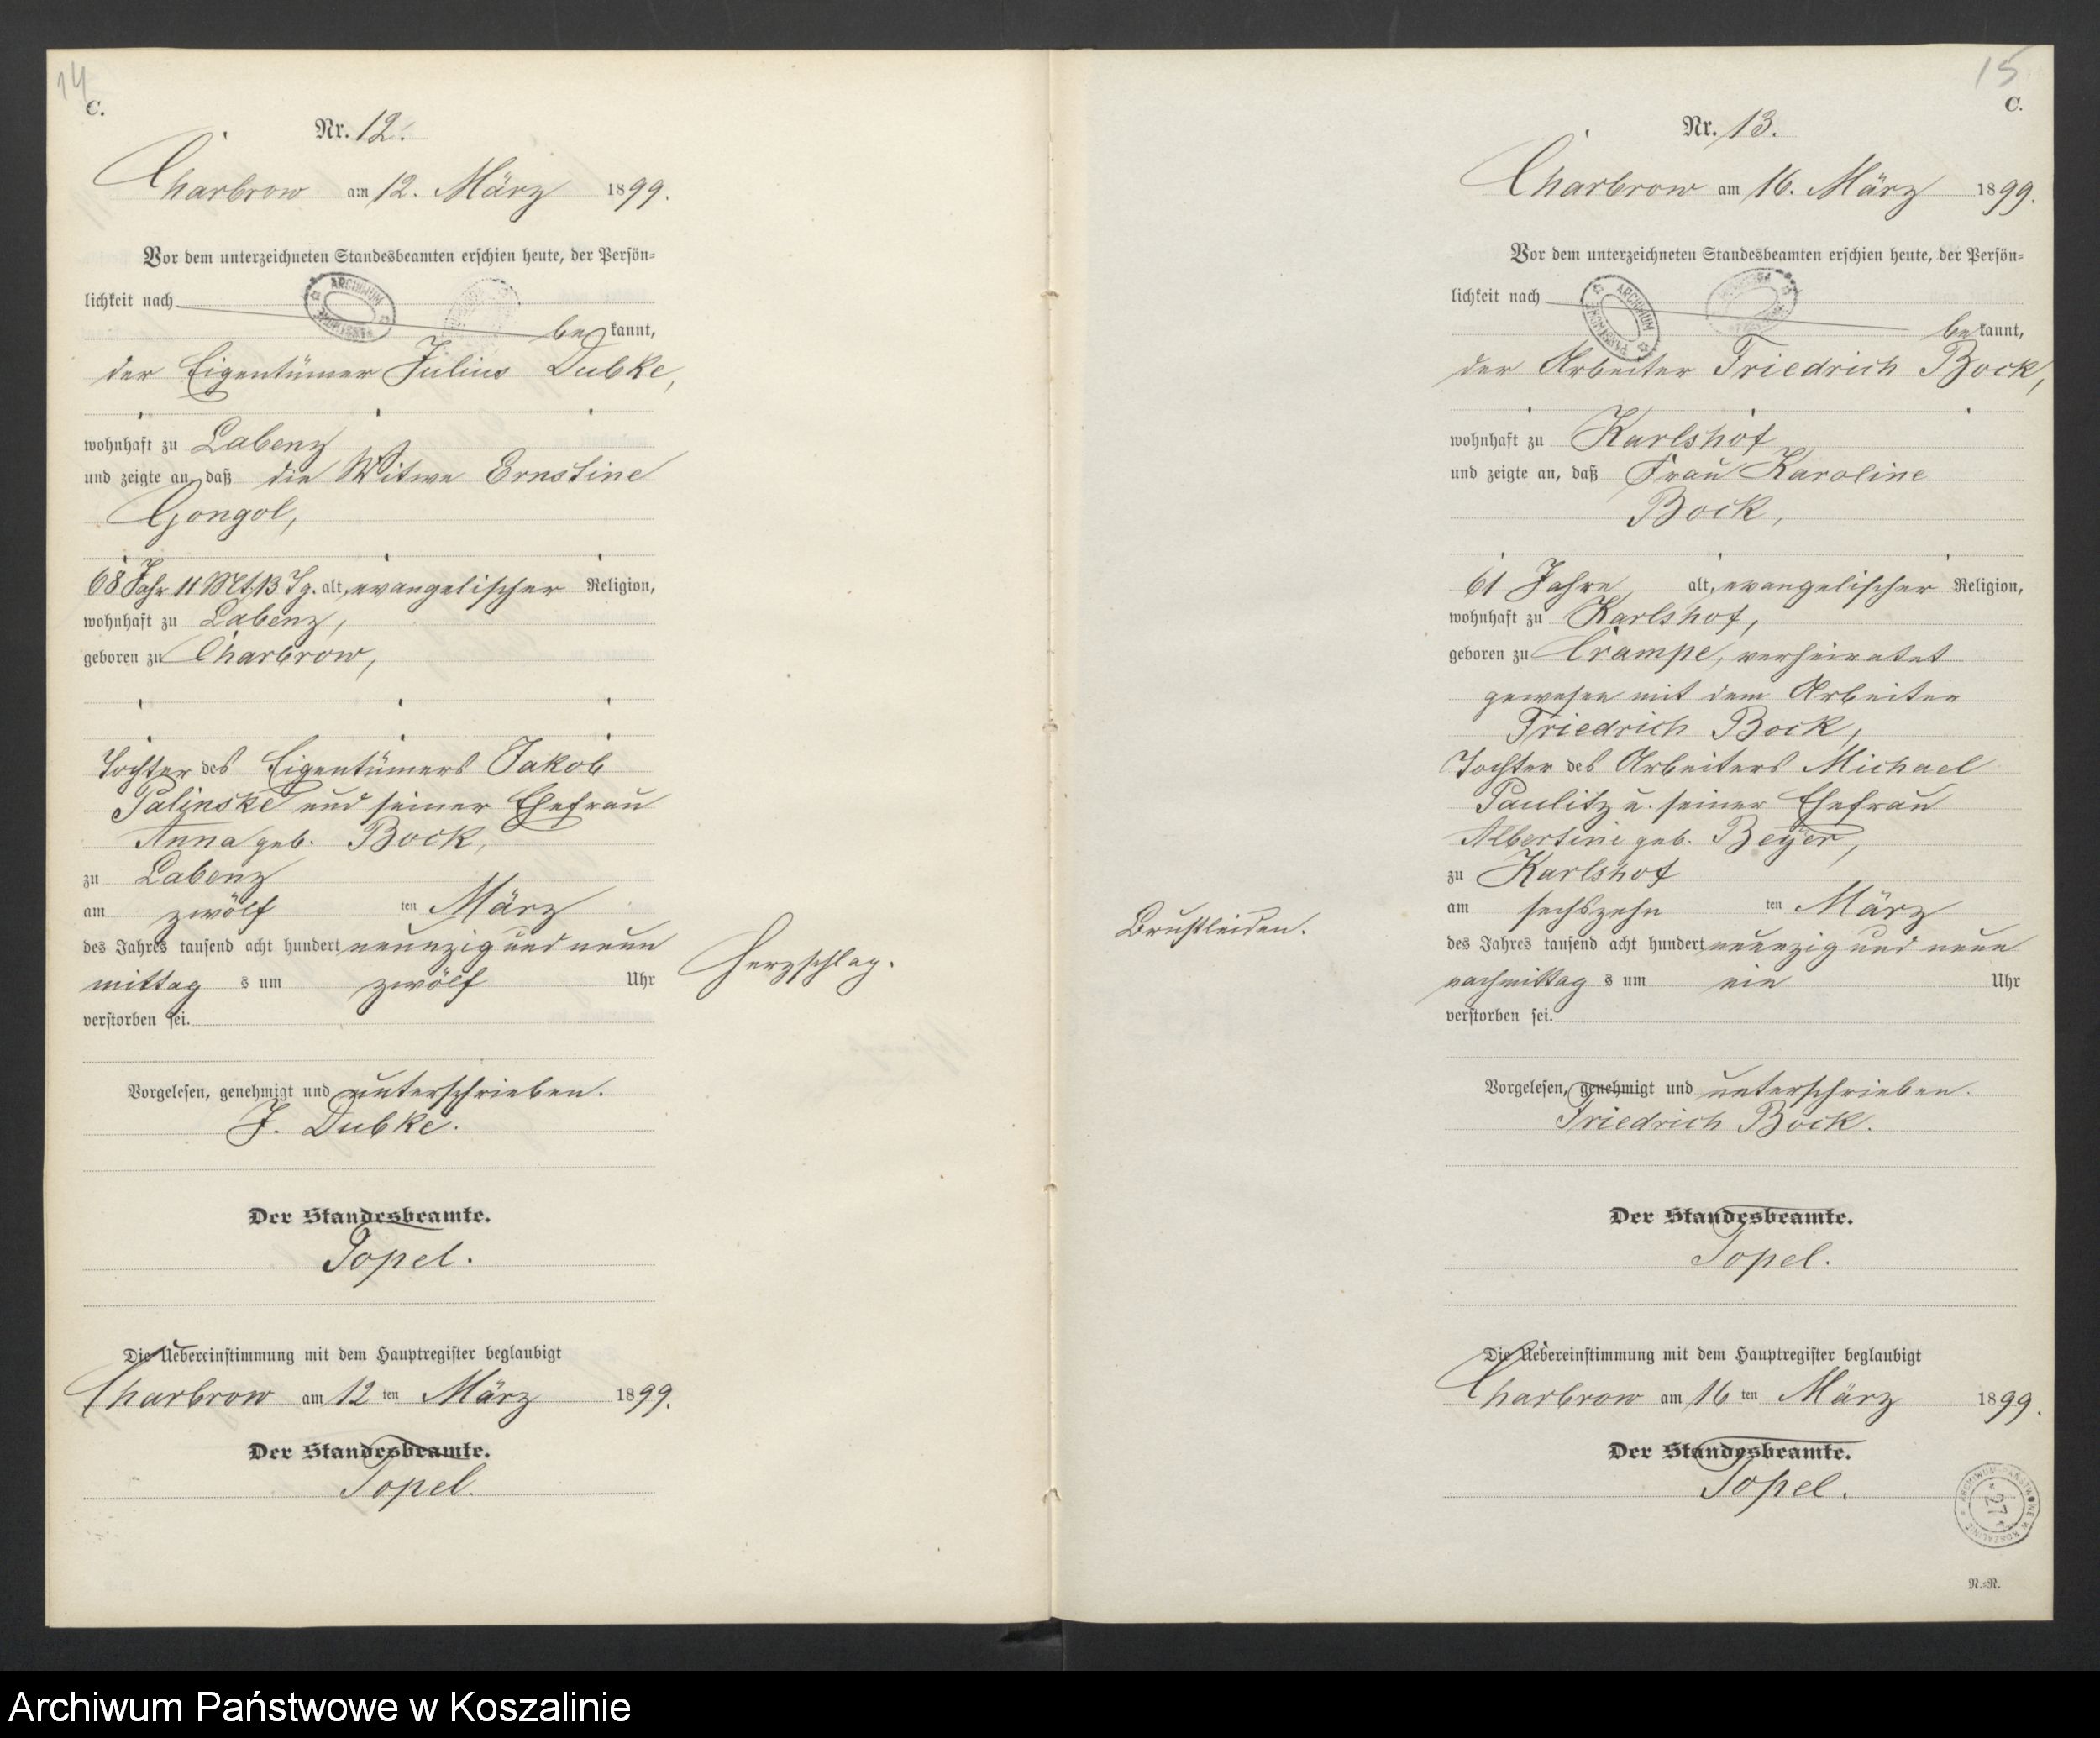 14
C.
Nr. 12.
Charbrow am 12. März 1899.
Vor dem unterzeichneten Standesbeamten erschien heute, der Persön=
lichkeit nach
ARCHIWUM
be kannt,
der Eigentümer Julius Dubke,
wohnhaft zu Labenz
und zeigte an, daß die Witwe Ernstine
Gongol,
68 Jahr 11 Mt. 13 Tg. alt, evangelischer Religion,
wohnhaft zu Labenz,
geboren zu Charbrow,
Tochter des Eigentümers Jakob
Palinske und seiner Ehefrau
Anna geb. Bock,
zu Labenz
am zwölf ten März
des Jahres tausend acht hundert neunzig und neun
mittag s um zwölf Uhr
verstorben sei.
Herzschlag.
Vorgelesen, genehmigt und unterschrieben.
J. Dubke.
Der Standesbeamte.
Topel.
Die Uebereinstimmung mit dem Hauptregister beglaubigt
Charbrow am 12 ten März 1899.
Der Standesbeamte.
Topel.
15
C.
Nr. 13.
Charbrow am 16. März 1899.
Vor dem unterzeichneten Standesbeamten erschien heute, der Persön=
lichkeit nach
ARCHIWUM
be kannt,
der Arbeiter Friedrich Bock,
wohnhaft zu Karlshof
und zeigte an, daß Frau Karoline
Bock,
61 Jahre alt, evangelischer Religion,
wohnhaft zu Karlshof,
geboren zu Crampe, verheiratet
gewesen mit dem Arbeiter
Friedrich Bock,
Tochter des Arbeiters Michael
Paulitz u. seiner Ehefrau
Albertine geb. Beyer,
zu Karlshof
am sechszehn ten März
des Jahres tausend acht hundert neunzig und neun
nachmittag s um ein Uhr
verstorben sei.
Brustleiden.
Vorgelesen, genehmigt und unterschrieben.
Friedrich Bock.
Der Standesbeamte.
Topel.
Die Uebereinstimmung mit dem Hauptregister beglaubigt
Charbrow am 16 ten März 1899.
Der Standesbeamte.
Topel.
ARCHIWUM PAŃSTWOWE W KOSZALINIE
27
N.=N.
Archiwum Państwowe w Koszalinie